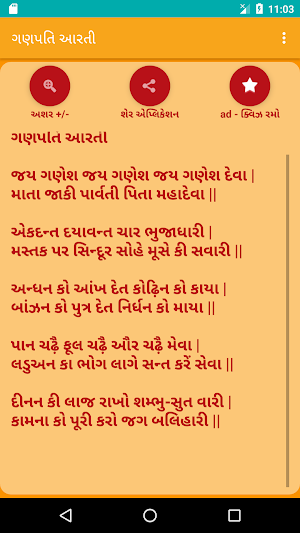 11:03
ગણપતિ આરતી
અશર +/-
શેર એપ્લિકેશન
ad - ક્વિઝ રમો
ગણપતિ આરતી
જય ગણેશ જય ગણેશ જય ગણેશ દેવા |
માતા જાકી પાર્વતી પિતા મહાદેવા ||
એકદન્ત દયાવન્ત ચાર ભુજાધારી |
મસ્તક પર સિન્દૂર સોહે મૂસે કી સવારી ||
અન્ધન કો આંખ દેત કોઢ઼િન કો કાયા |
બાંઝન કો પુત્ર દેત નિર્ધન કો માયા ||
પાન ચઢ઼ૈ ફૂલ ચઢ઼ૈ ઔર ચઢ઼ૈ મેવા |
લડુઅન કા ભોગ લાગે સન્ત કરેં સેવા ||
દીનન કી લાજ રાખો શમ્ભુ-સુત વારી |
કામના કો પૂરી કરો જગ બલિહારી ||